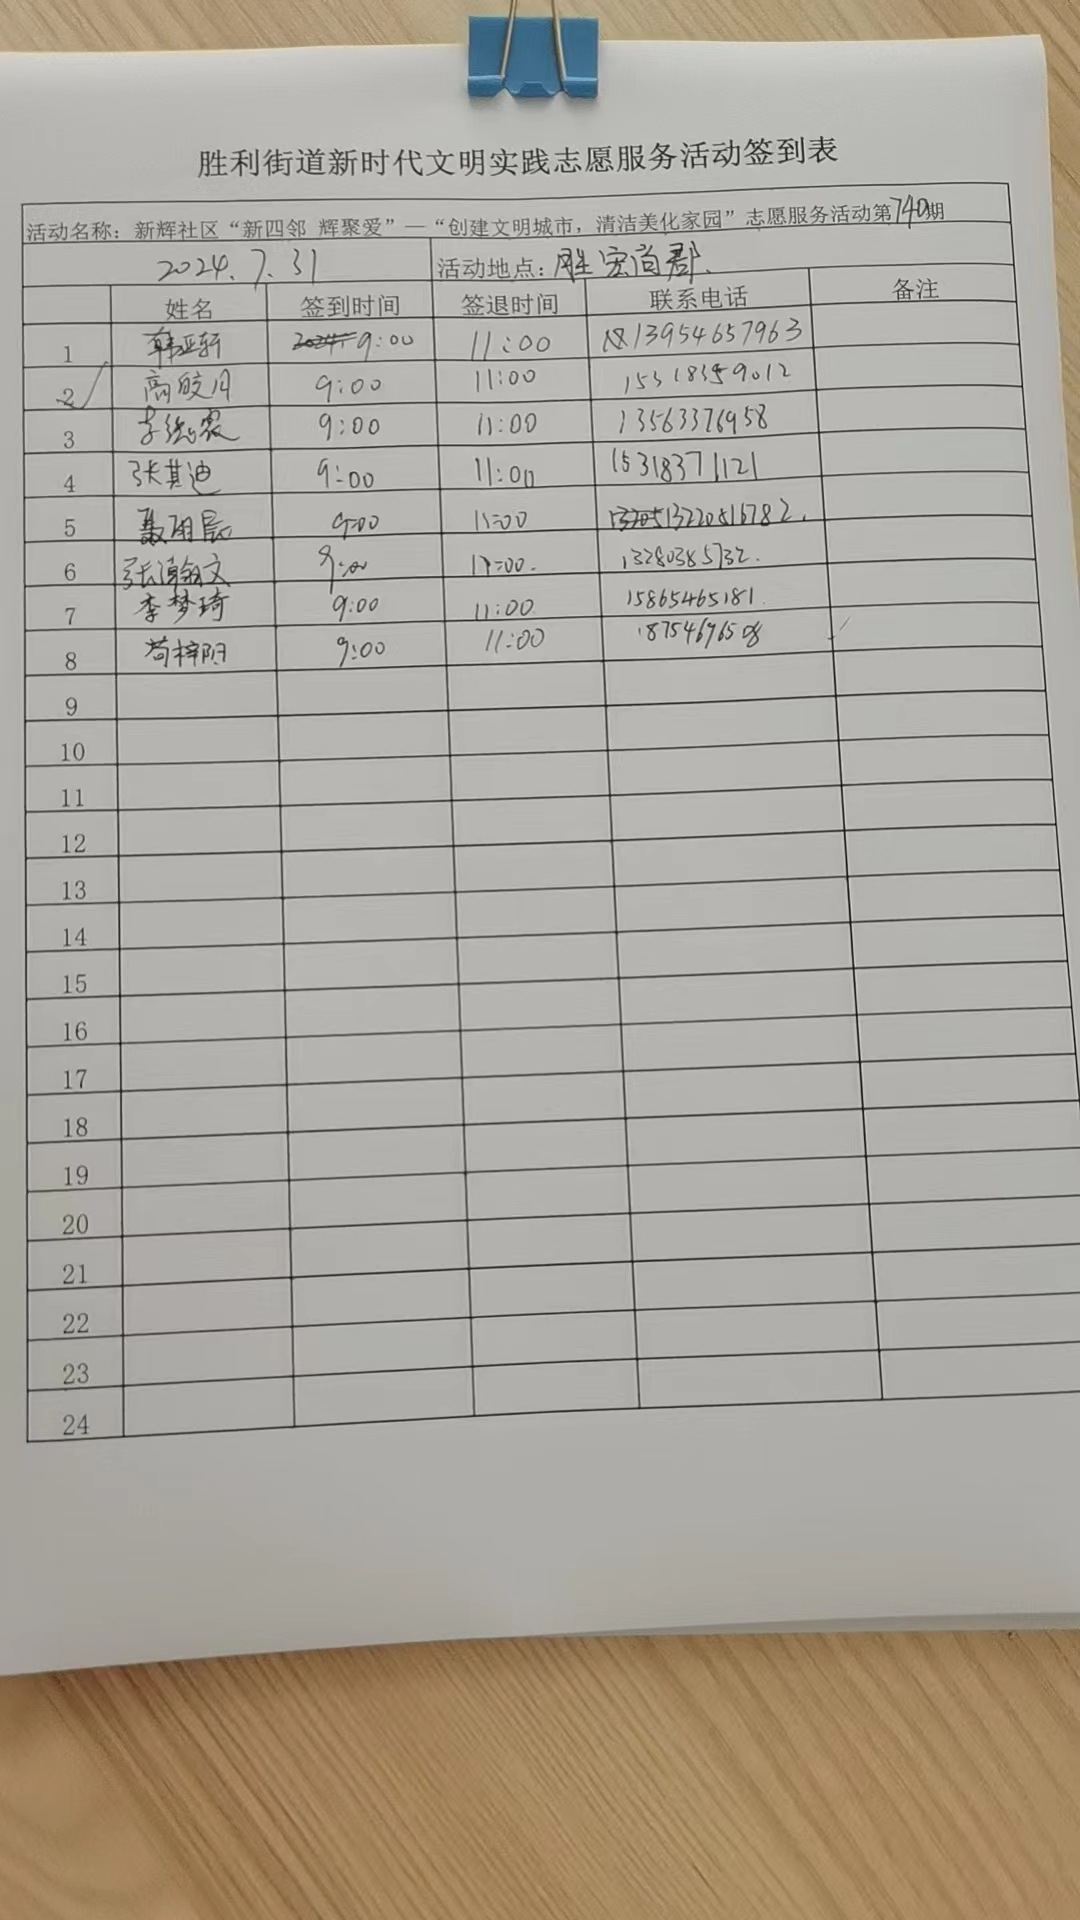 胜利街道新时代文明实践志愿服务活动签到表
活动名称：新辉社区“新四邻 辉聚爱”—“创建文明城市，清洁美化家园”志愿服务活动第740期
2024.7.31 活动地点：胜宏尚郡.
姓名 签到时间 签退时间 联系电话 备注
1 韩亚轩 9:00 11:00 13954657963
2 高皎月 9:00 11:00 15318359012
3 李德农 9:00 11:00 13563376958
4 张其迪 9:00 11:00 15318371121
5 聂明辰 9:00 11:00 13220516782.
6 张瀚文 9:00 11:00. 13280385732.
7 李梦琦 9:00 11:00. 15865465181.
8 苟梓阳 9:00 11:00 18754696508
9
10
11
12
13
14
15
16
17
18
19
20
21
22
23
24